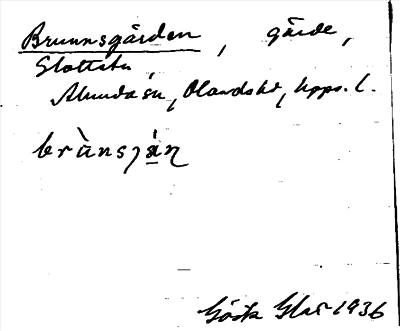 Brunnsgärden, gärde,
Slottstu,
Alunda sn, Olandshd, Upps. l.
brùnsjä̀ɳ
Gösta 1936